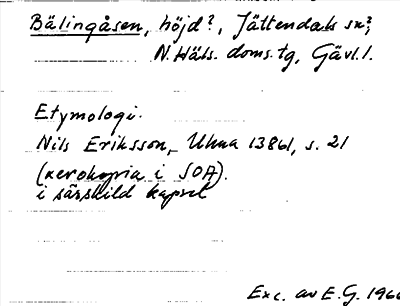 Bälingåsen, höjd?, Jättendals sn?,
N. Häls. doms. tg, Gävl. l.
Etymologi.
Nils Eriksson, Uhma 13861, s. 21
(xerokopia i SOA).
i särskild kapsel
Exc. av E.G. 196